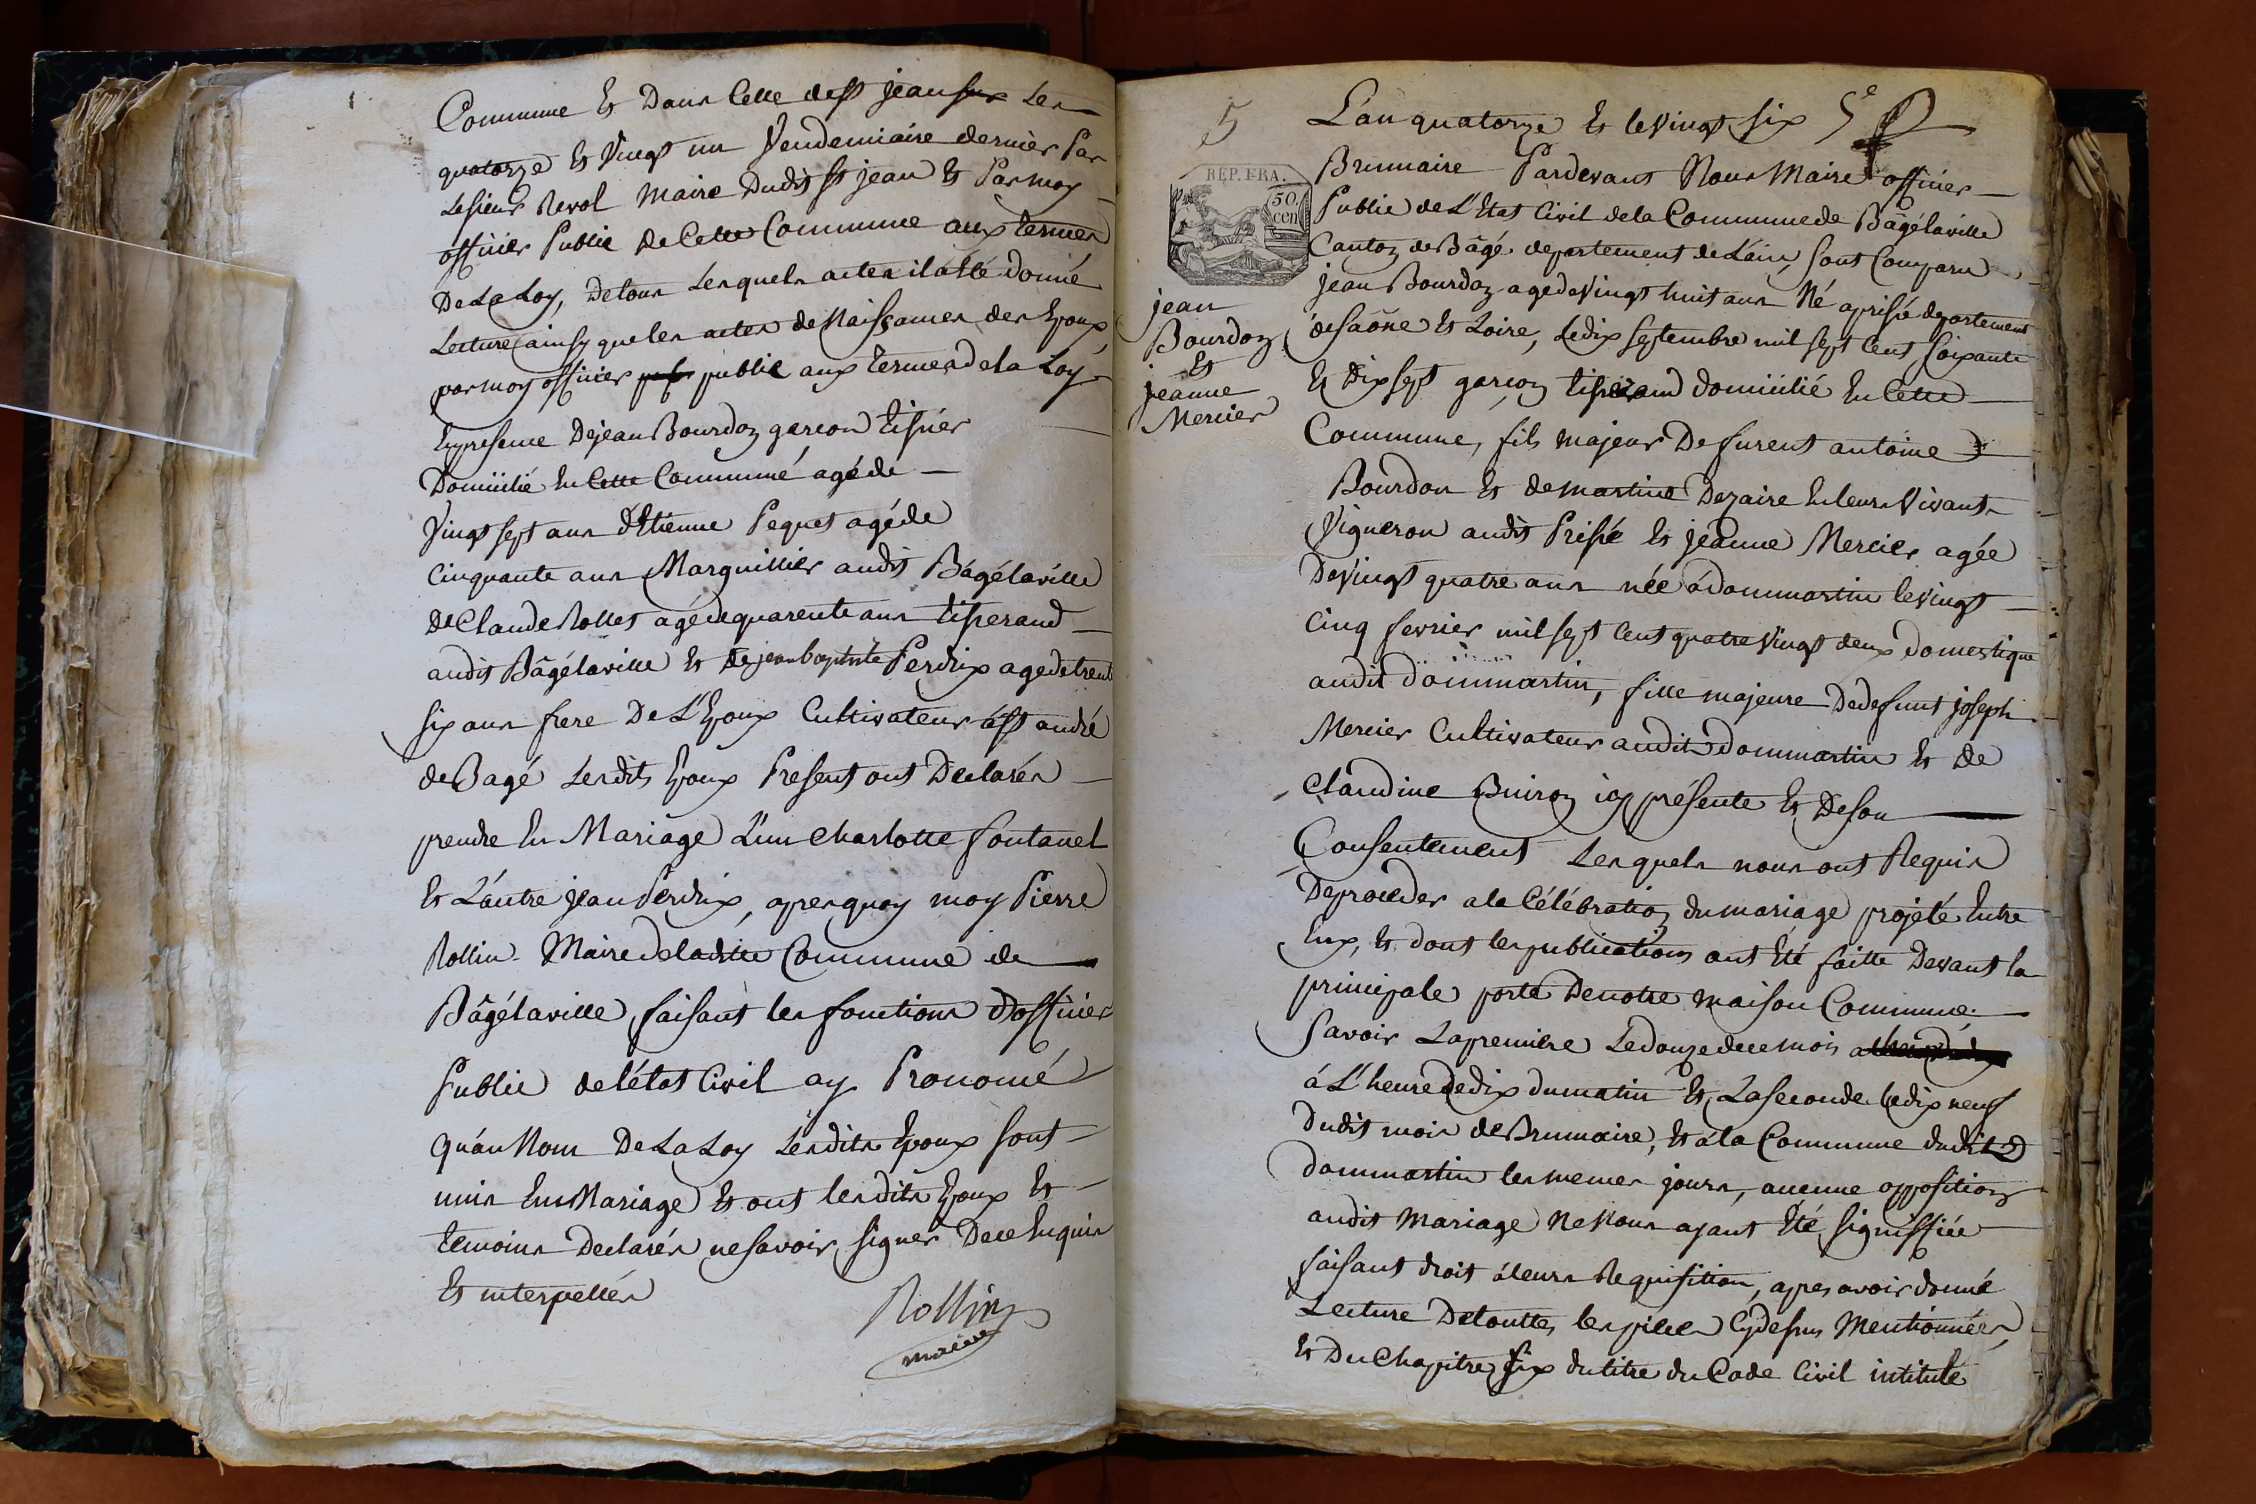 Commune Et Dans Celle de St jean sur Les
quatorze Et Vingt un Vendemiaire dernier Par
Le sieur Revol Maire Dudit St jean Et Par moy
officier Public De Cette Commune aux termes
De La Loy, De tous Lesquels actes il a Eté donné
Lecture ainsy que les actes de Naissances des Epoux,
par moy officier public aux termes de la Loy
En presence De jean Bourdon garcon tissier
Domicilié En Cette Commune agé de
Vingt sept ans d'Etienne Pequet agé de
Cinquante ans Marguillier audit Bâgélaville
De Claude Rollet agé de quarente ans tisserand
audit Bâgélaville Et De jean baptiste Perdrix agé de trente
six ans frere De L'Epoux Cultivateur à St andré
de Bagé Lesdits Epoux Present ont Declarés
prendre En Mariage L'un Charlotte fontanel
Et L'autre jean Perdrix, apres quoy moy Pierre
Rollin Maire de ladite Commune de
Bâgélaville faisant les fonctions D'officier
Public de l'état Civil ay Pronomé
qu'au Nom De La Loy Lesdits Epoux sont
unis En Mariage Et ont lesdits Epoux Et
temoins Declarés ne savoir signer De ce Enquis
Et interpellés
Rollin
maire
5
L'an quatorze Et le Vingt six 5e
REP. FRA.
50 cen
Brumaire Pardevant Nous Maire officier
Public de L'Etat Civil de la Commune de Bâgélaville
Canton de Bâgé departement de L'ain, sont Comparu
jean Bourdon agé de Vingt huit ans Né a prissé departement
de saône Et Loire, Le dix septembre mil sept Cent soixante
Et Dix sept garçon tisserand domicilié En Cette
Commune, fils majeur De furent antoine
Bourdon Et de martine Dezaire En leurs Vivants
Vigneron audit Prissé Et jeanne Mercier agée
De Vingt quatre ans née à dommartin le Vingt
Cinq fevrier mil sept Cent quatre Vingt deux domestique
audit dommartin, fille majeure De defunt joseph
Mercier Cultivateur audit dommartin Et De
Claudine Buiron icy présente Et De son
Consentement Lesquels nous ont Requis
De proceder a la Célébration du mariage projeté Entre
Eux, Et dont les publications ont Eté faitte Devant la
principale porte De notre maison Commune.
savoir La premiere Le douze de ce mois
à L'heure de dix du matin Et La seconde le dix neuf
Dudit mois de Brumaire, Et à la Commune dudit
dommartin les memes jours, aucune opposition
audit Mariage Ne Nous ayant Eté signiffiée
faisant droit à leurs Requisition, apres avoir donné
Lecture De touttes les pieces Cy dessus Mentionnées,
Et Du Chapitre six du titre du Code Civil intitulé
jean
Bourdon
Et
jeanne
Mercier